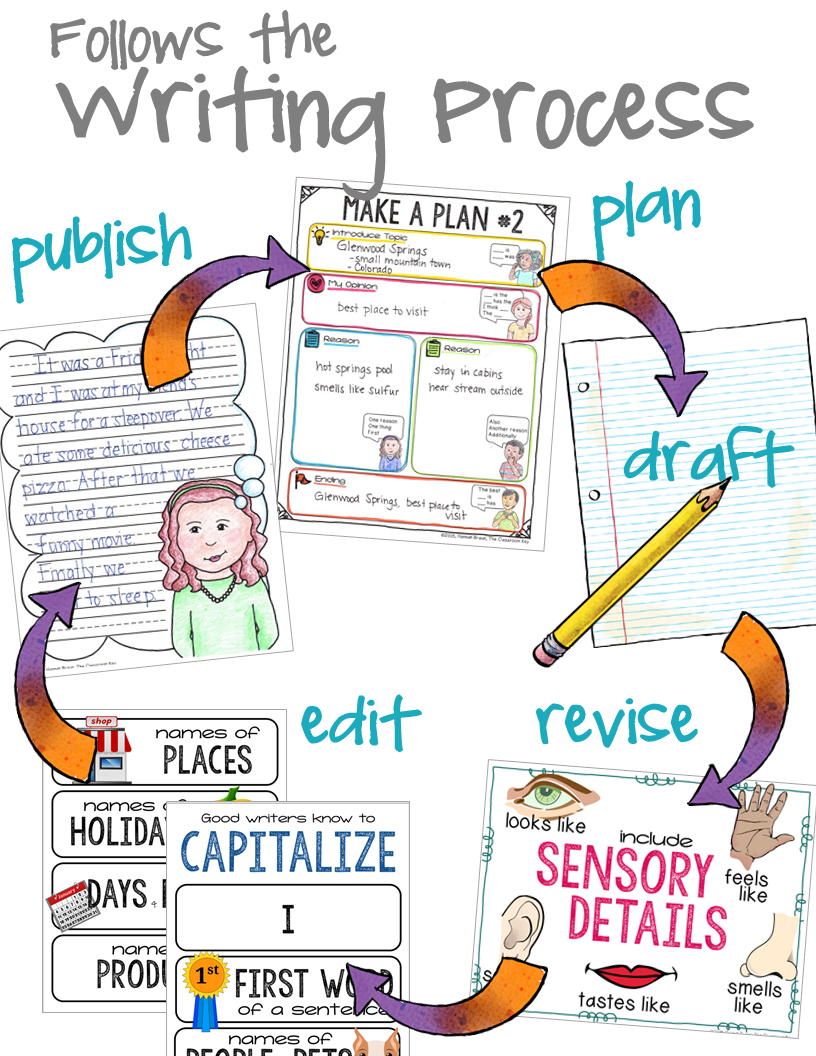 Follows the
Writing Process
plan
MAKE A PLAN #2
Introduce Topic
Glenwood Springs
-small mountain town
- Colorado
__ is
__ was
My Opinion
best place to visit
__ is the
__ has the
I think __
The __
Reason
hot springs pool
smells like sulfur
One reason
One thing
First
Reason
stay in cabins
hear stream outside
Also
Another reason
Additionally
Ending
Glenwood Springs, best place to
visit
The best
__ is
__ has
©2015, Hannah Braun, The Classroom Key
draft
revise
looks like
include
SENSORY
DETAILS
feels
like
tastes like
smells
like
edit
shop
names of
PLACES
names
HOLIDA
January
DAYS,
name
PRODU
Good writers know to
CAPITALIZE
I
1st
FIRST WORD
of a sentence
names of
PEOPLE, PETS
publish
It was a Frid ht
and I was at my friend's
house for a sleepover. We
ate some delicious cheese
pizza. After that we
watched a
funny movie.
Finally we
to sleep.
Hannah Braun, The Classroom Key